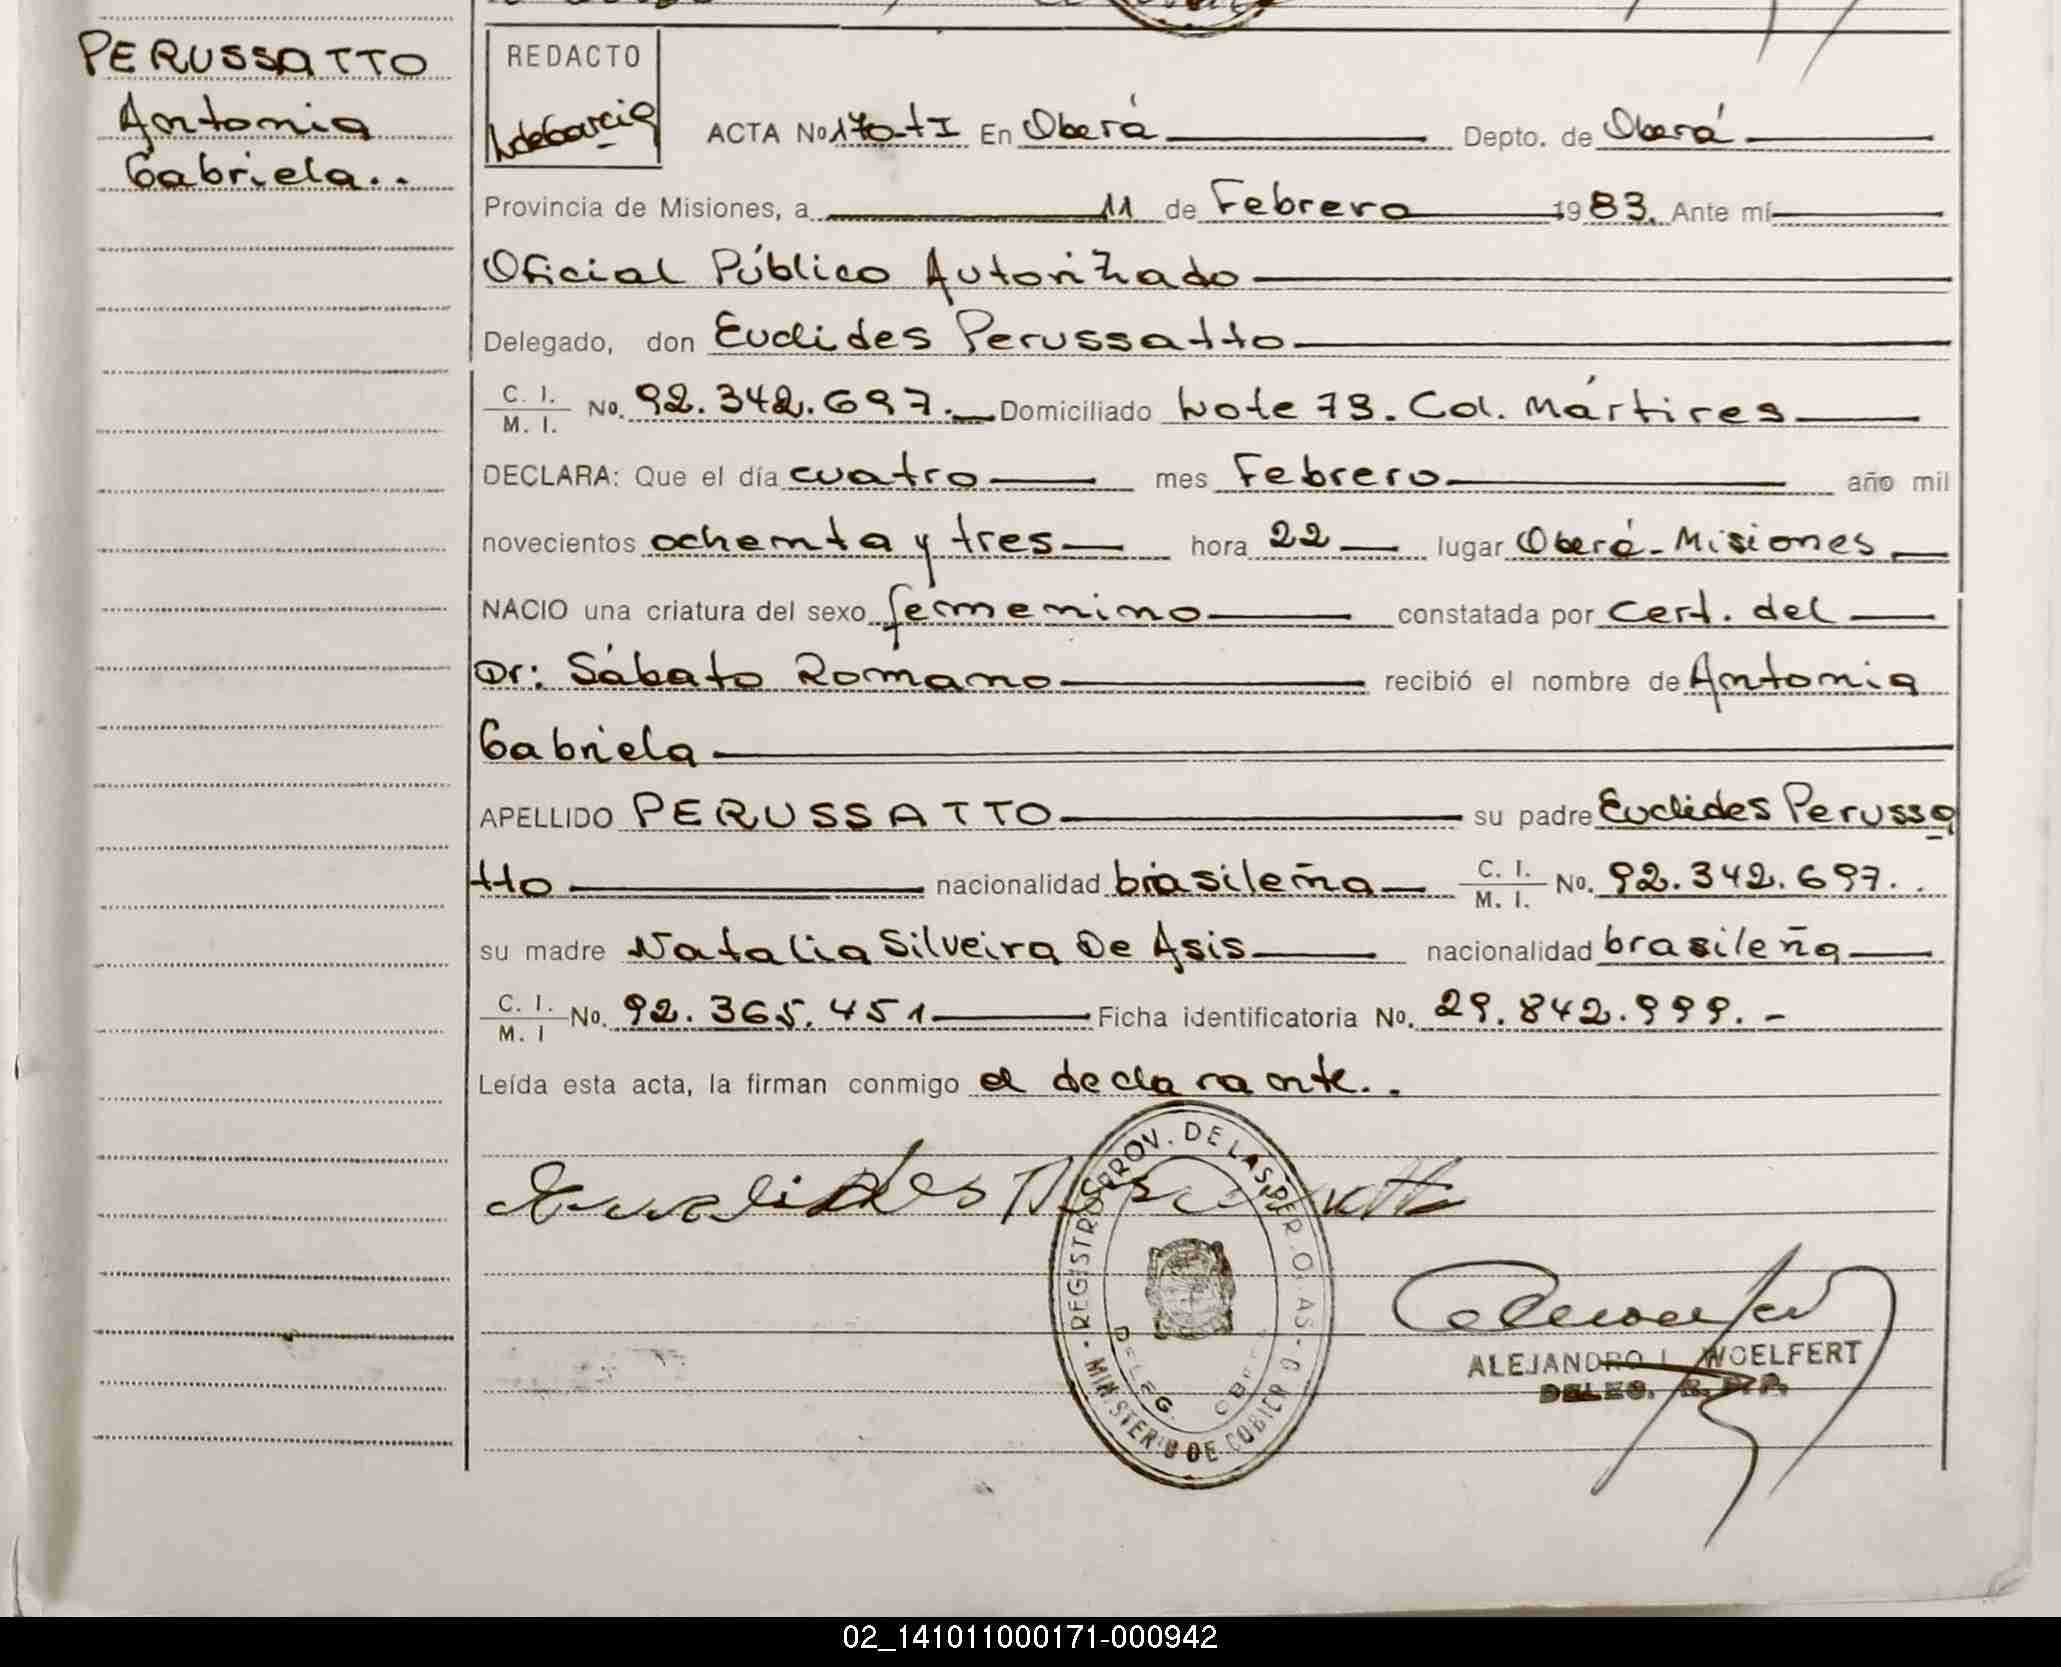 PERUSSATTO
Antonia
Gabriela..
REDACTO
ACTA No 170-tI En Oberá Depto. de Oberá
Provincia de Misiones, a 11 de Febrero 1983. Ante mí
Oficial Público Autorizado
Delegado, don Euclides Perussatto
C. I. / M. I. No. 92.342.697. Domiciliado Lote 79. Col. Mártires
DECLARA: Que el día cuatro mes Febrero año mil
novecientos ochenta y tres hora 22 lugar Oberá-Misiones
NACIO una criatura del sexo femenino constatada por Cert. del
Dr: Sábato Romano recibió el nombre de Antonia
Gabriela
APELLIDO PERUSSATTO su padre Euclides Perussa
tto nacionalidad brasileña C. I. / M. I. No. 92.342.697..
su madre Natalia Silveira De Asis nacionalidad brasileña
C. I. / M. I No. 92.365.451 Ficha identificatoria No. 29.842.999.-
Leída esta acta, la firman conmigo el declarante..
Euclides Perussatto
REGISTROS PROV. DE LAS PER
MINISTERIO DE
DELEG.
ALEJANDRO L. WOELFERT
DELEG. R.P.P.
02_141011000171-000942